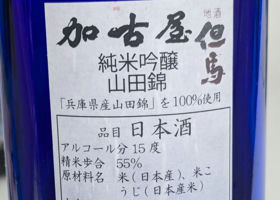 地酒
加古屋 但馬
純米吟醸
山田錦
「兵庫県産山田錦」を100%使用
品目 日本酒
アルコール分15度
精米歩合 55%
原材料名 米(日本産)、米こ
うじ(日本産米)